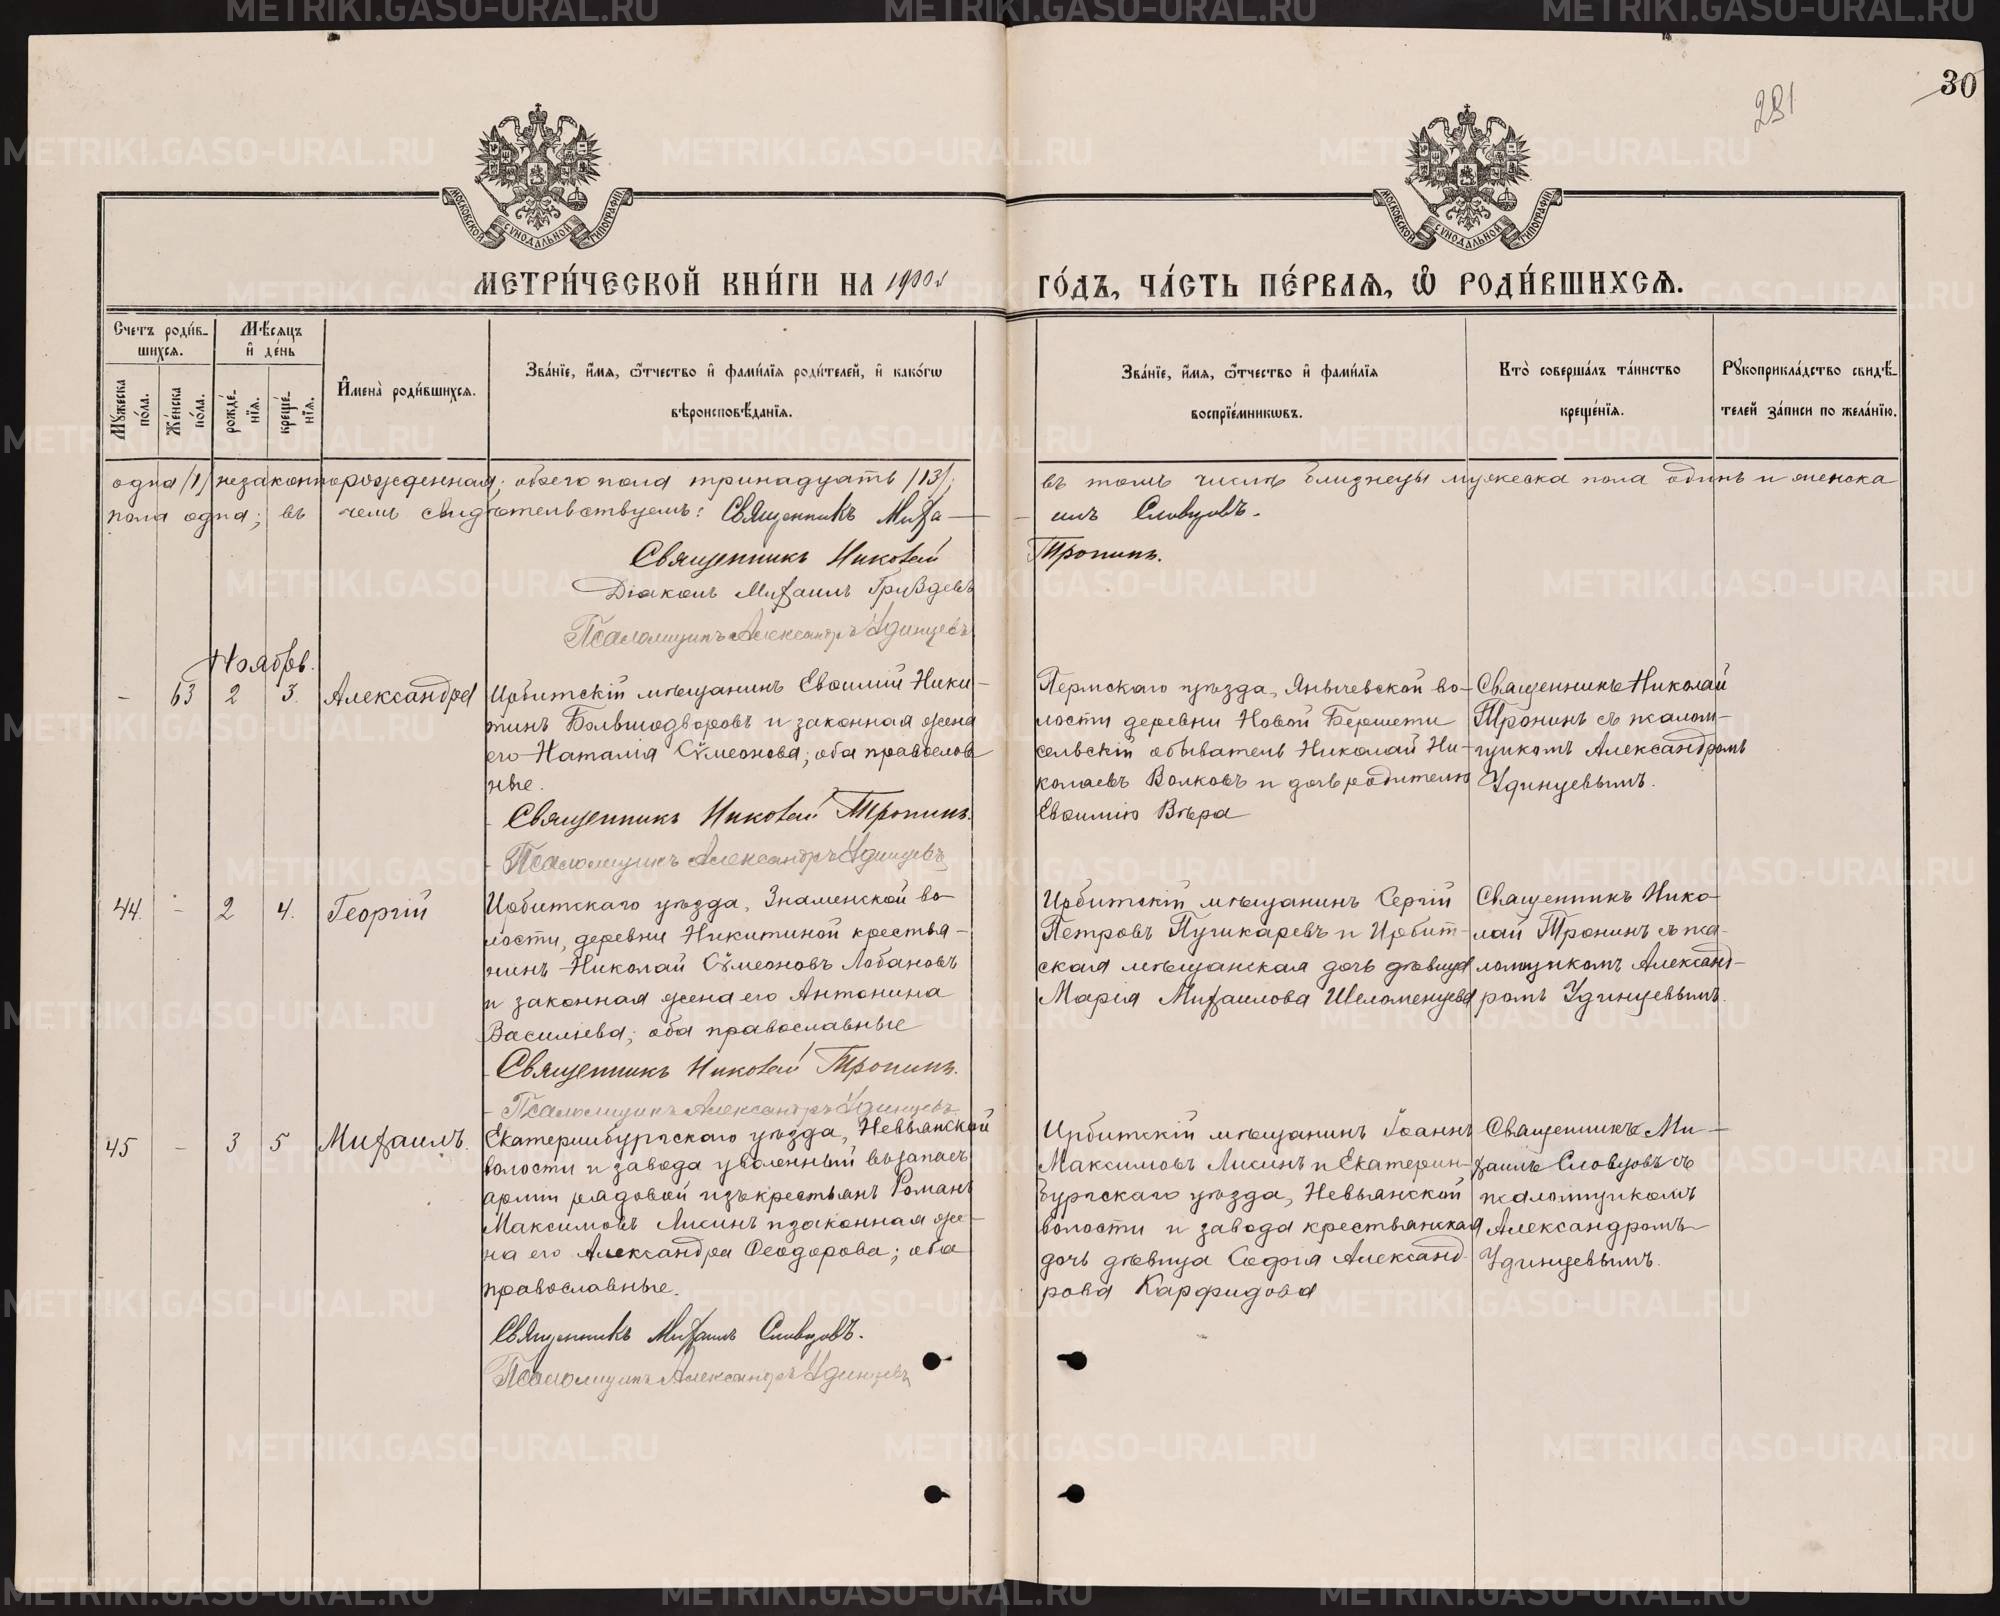 30
281
МОСКОВСКОЙ СУНОДАЛЬНОЙ ТИПОГРАФІИ
МОСКОВСКОЙ СУНОДАЛЬНОЙ ТИПОГРАФІИ
МЕТРИ́ЧЕСКОЙ КНИ́ГИ НА 1900
ГО́ДЪ, ЧА́СТЬ ПЕ́РВАѦ, Ѡ҆ РОДИ́ВШИХСѦ.
Счетъ роди́в-
шихсѧ.
Мꙋжеска по́ла.
Же́нска по́ла.
Мѣ́сѧцъ и҆ де́нь
рожде́нїѧ.
креще́нїѧ.
И҆мена̀ роди́вшихсѧ.
Зва́нїе, и҆́мѧ, ѻ҆́тчество и҆ фами́лїѧ роди́телей, и҆ како́гѡ
вѣроисповѣ́данїѧ.
Зва́нїе, и҆́мѧ, ѻ҆́тчество и҆ фами́лїѧ
воспрїе́мникѡвъ.
Кто̀ соверша́лъ та́инство
креще́нїѧ.
Рꙋкоприкла́дство свидѣ́-
телей за́писи по жела́нїю.
одна /1/ незаконнорожденная; обоего пола тринадцать /13/;
въ томъ числѣ близнецы мужеска пола одинъ и женска
пола одна; въ чемъ свидѣтельствуемъ: Священникъ Миха-
илъ Словцовъ.
Священникъ Николай
Тронинъ.
Діаконъ Михаилъ Груздевъ
Псаломщикъ Александръ Удинцевъ
Ноябрь.
- 63 2 3. Александра
Ирбитскій мѣщанинъ Евѳимій Ники-
тинъ Большодворовъ и законная жена
его Наталія Сѵмеонова; оба православ
ные.
Священникъ Николай Тронинъ.
Псаломщикъ Александръ Удинцевъ
Пермскаго уѣзда, Янычевской во-
лости деревни Новой Бершети
сельскій обыватель Николай Ни-
колаевъ Волковъ и дочь родителю
Евѳимію Вѣра
Священникъ Николай
Тронинъ съ псалом-
щикомъ Александромъ
Удинцевымъ.
44. - 2 4. Георгій
Ирбитскаго уѣзда, Знаменской во-
лости, деревни Никитиной крестья-
нинъ Николай Сѵмеоновъ Лобановъ
и законная жена его Антонина
Васильева; оба православные
Священникъ Николай Тронинъ.
Псаломщикъ Александръ Удинцевъ
Ирбитскій мѣщанинъ Сергій
Петровъ Пушкаревъ и Ирбит-
ская мѣщанская дочь дѣвица
Марія Михаилова Шеломенцева
Священникъ Нико-
лай Тронинъ съ пса-
ломщикомъ Александ-
ромъ Удинцевымъ.
45 - 3 5 Михаилъ.
Екатеринбургскаго уѣзда, Невьянской
волости и завода уволенный въ запасъ
арміи рядовой изъ крестьянъ Романъ
Максимовъ Лисинъ и законная же-
на его Александра Ѳеодорова; оба
православные.
Священникъ Михаилъ Словцовъ.
Псаломщикъ Александръ Удинцевъ
Ирбитскій мѣщанинъ Іоаннъ
Максимовъ Лисинъ и Екатерин-
бургскаго уѣзда, Невьянской
волости и завода крестьянская
дочь дѣвица Софія Александ-
рова Карфидова
Священникъ Ми-
хаилъ Словцовъ съ
псаломщикомъ
Александромъ
Удинцевымъ.
METRIKI.GASO-URAL.RU